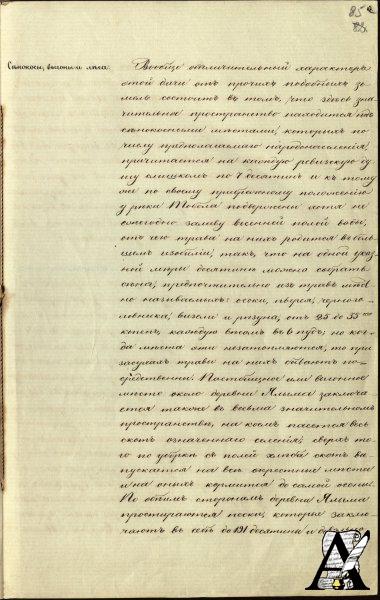 85
88.
Сенокосы, выгоны и леса.
Вообще отличительный характеръ
этой дачи отъ прочихъ подобныхъ зе
мель состоитъ въ томъ, что здесь зна
чительное пространство находится подъ
сенокосными местами, которыхъ по
числу предполагаемаго народонаселенія,
причитается на каждую ревизскую ду
шу слишкомъ по 7 десятинъ и къ тому
же по своему прибрежному положенію
у реки Тобола подвержены хотя не
ежегодно заливу весенней полой воды,
отъ чего трава на нихъ родится въ боль
шемъ изобиліи, такъ, что на одной указ
ной меры десятине можно собрать
сена, предпочтительно изъ травъ мест
но называемыхъ: осоки, пырея,
визеля и резуна, отъ 25 до 35
копенъ, каждую весомъ въ 6 пудъ; но ког
да места эти незатопляются, то при
засухахъ травы на нихъ бываютъ по
средственны. Пастбищное или выгонное
место около деревни Ялыма заключа
ется также въ весьма значительномъ
пространстве, на коемъ пасется весь
скотъ означеннаго селенія; сверхъ то
го по уборке съ полей хлеба скотъ вы
пускается на все окрестные места
и на оныхъ кормится до самой осени.
По обеимъ сторонамъ деревни Ялыма
простираются пески, которые заклю
чаютъ въ себе до 191 десятины и